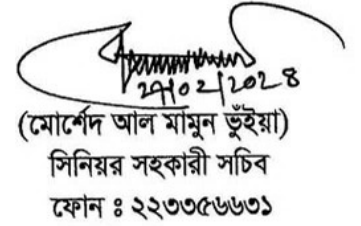 ২৭/০২/২০২৪
(মোর্শেদ আল মামুন ভূঁইয়া)
সিনিয়র সহকারী সচিব
ফোন ঃ ২২৩৩৫৬৬৩১